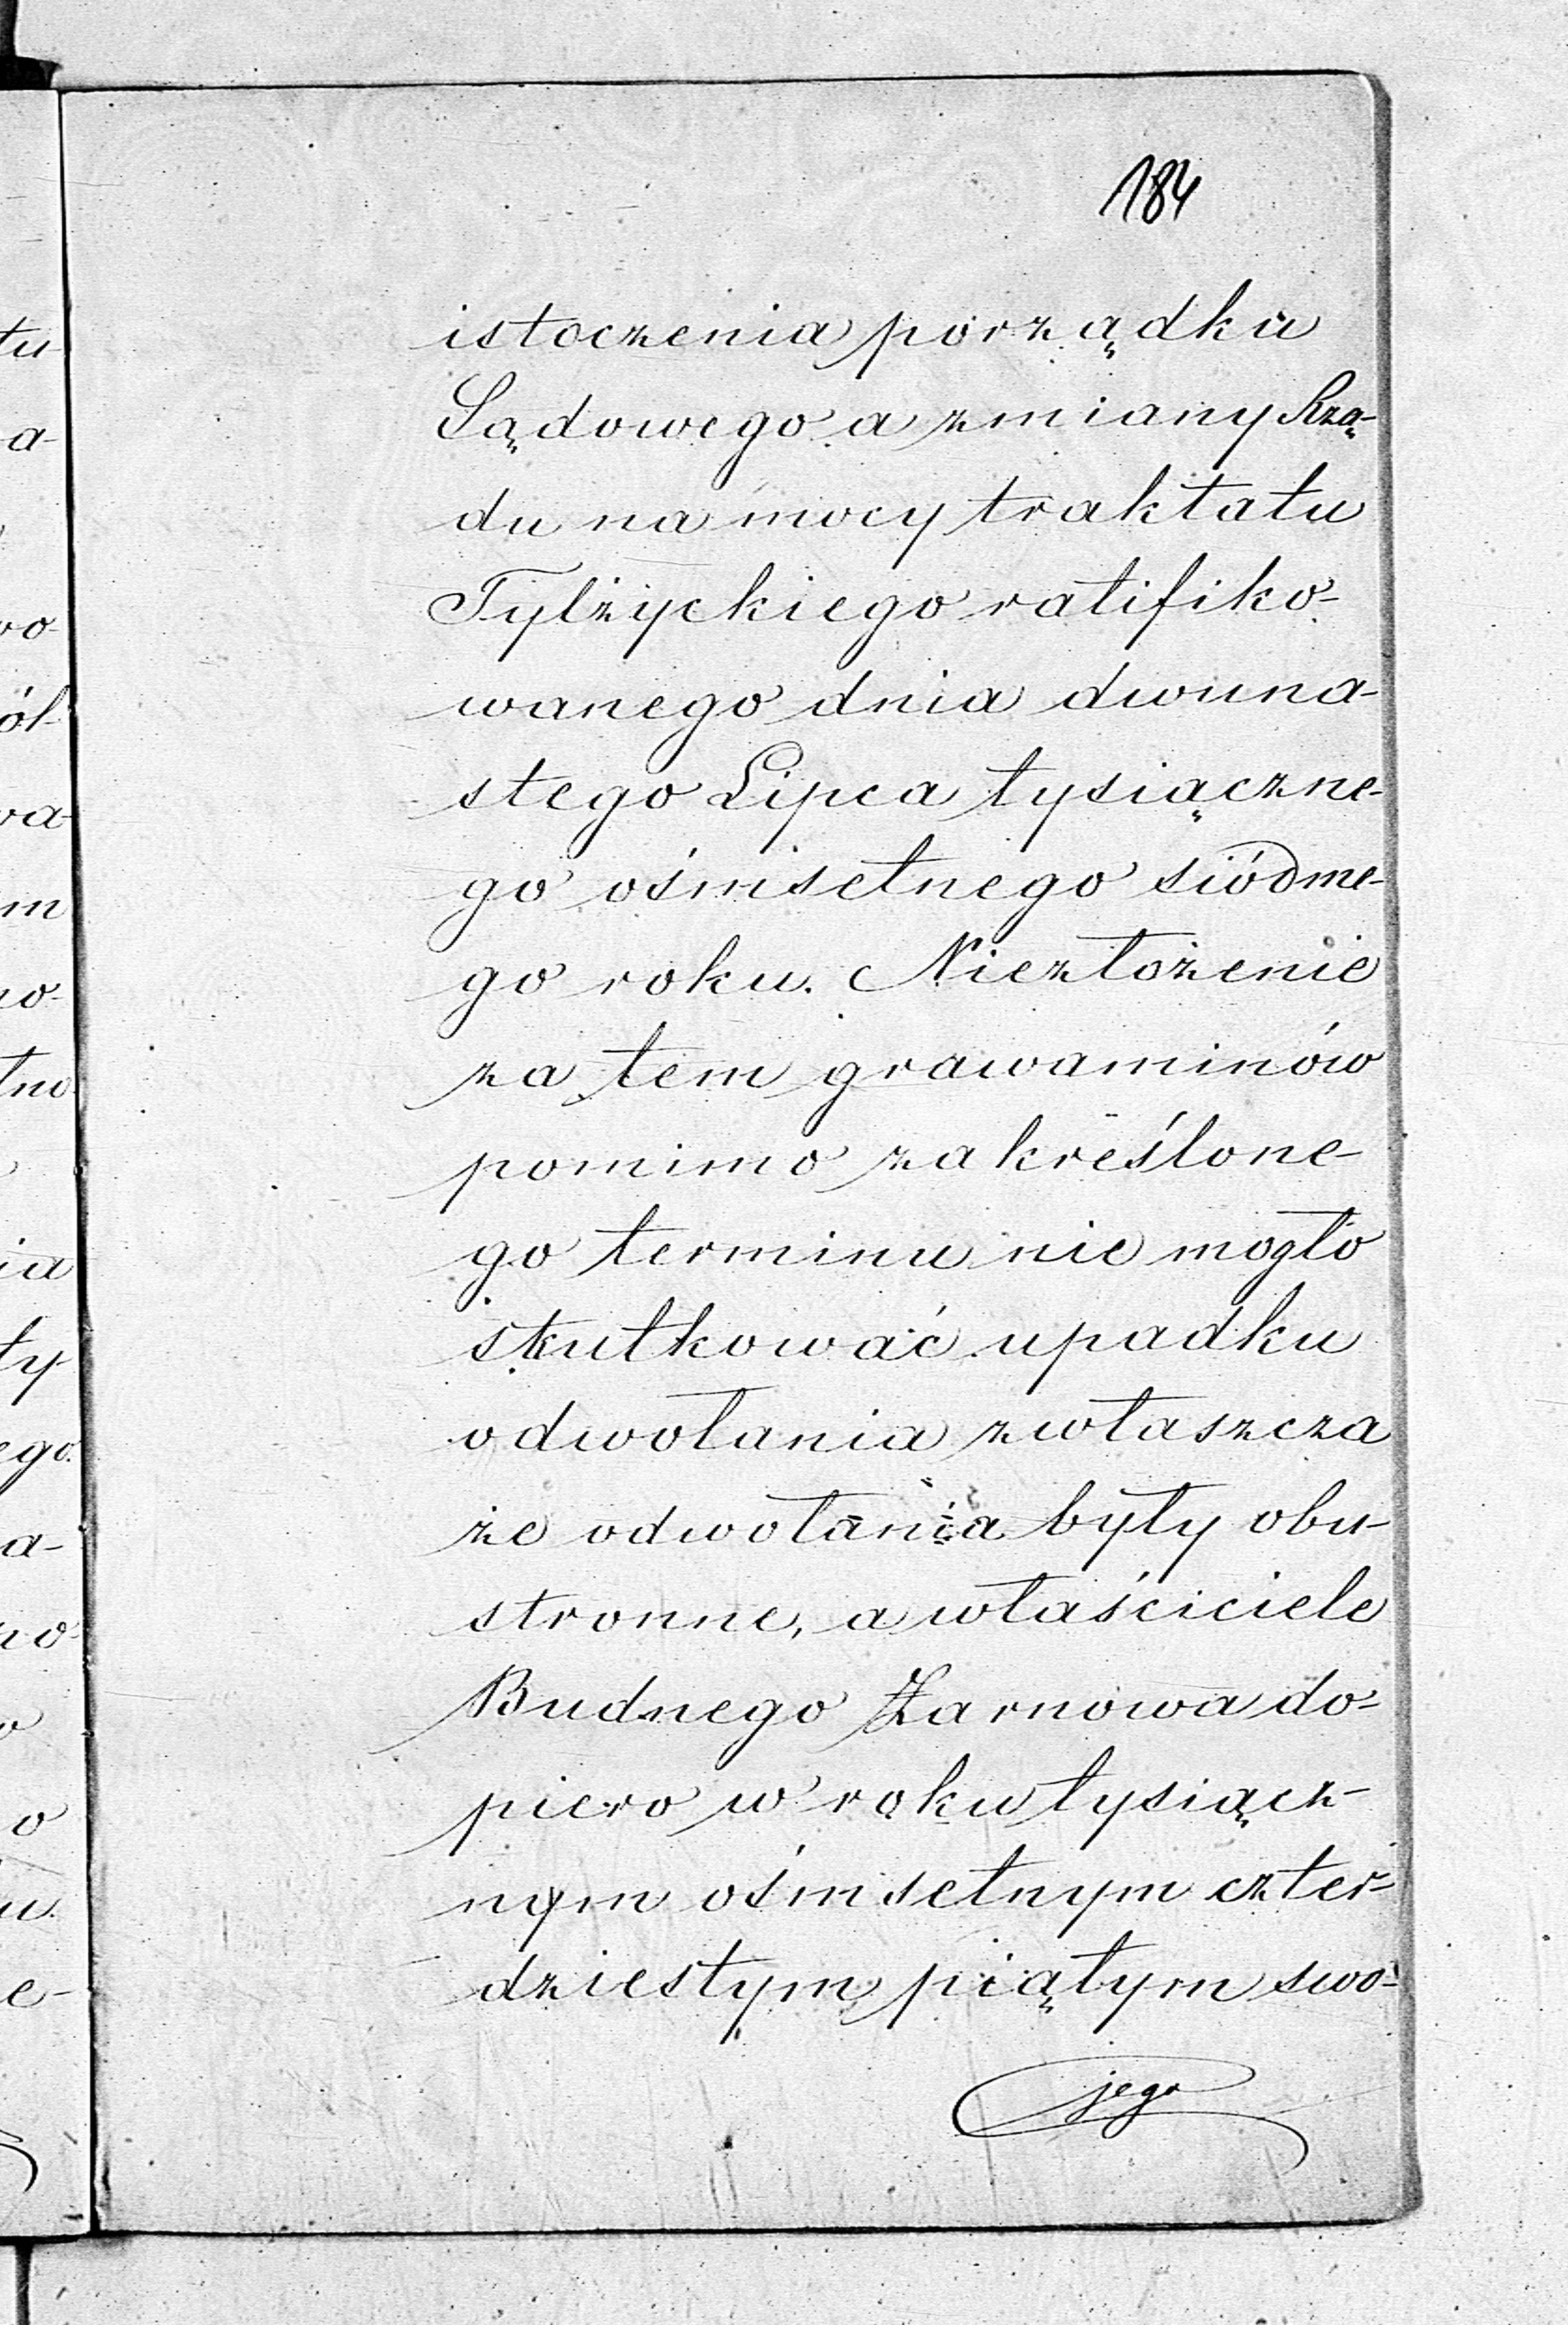 184
istoczenia porządku
Sądowego a zmiany Rzą-
du na mocy traktatu
Tylżyckiego ratifiko-
wanego dnia dwuna-
stego Lipca tysiączne-
go ośmsetnego siódme-
go roku. Niezłożenie
za tem grawaminów
pomimo zakreślone-
go terminu nie mogło
skutkować upadku
odwołania zwłaszcza
że odwołania były obu-
stronne, a właściciele
Budnego Żarnowa do-
piero w roku tysiącz-
nym ośmsetnym czter-
dziestym piątym swo-
jego